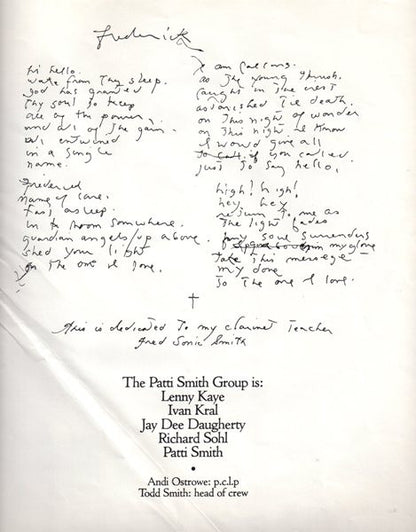 Frederick
hi hello.
wake from thy sleep.
god has granted
thy soul to keep
all of the power
and all of the pain.
all entwined
in a single
name.
Frederick
name of care.
fast asleep.
in a room somewhere.
guardian angels/up above.
shed your light
on the one I love.
I am calling.
as the young thrush.
caught in the nest
astonished til death.
on this night of wonder
on this night I know
I would give all
to call. if you called
just to say hello.
high! high!
hey hey
return to me as
the light fades
my soul surrenders
take this message
my dove
to the one I love.
†
this is dedicated to my clarinet teacher
fred sonic smith
The Patti Smith Group is:
Lenny Kaye
Ivan Kral
Jay Dee Daugherty
Richard Sohl
Patti Smith
•
Andi Ostrowe: p.c.l.p
Todd Smith: head of crew